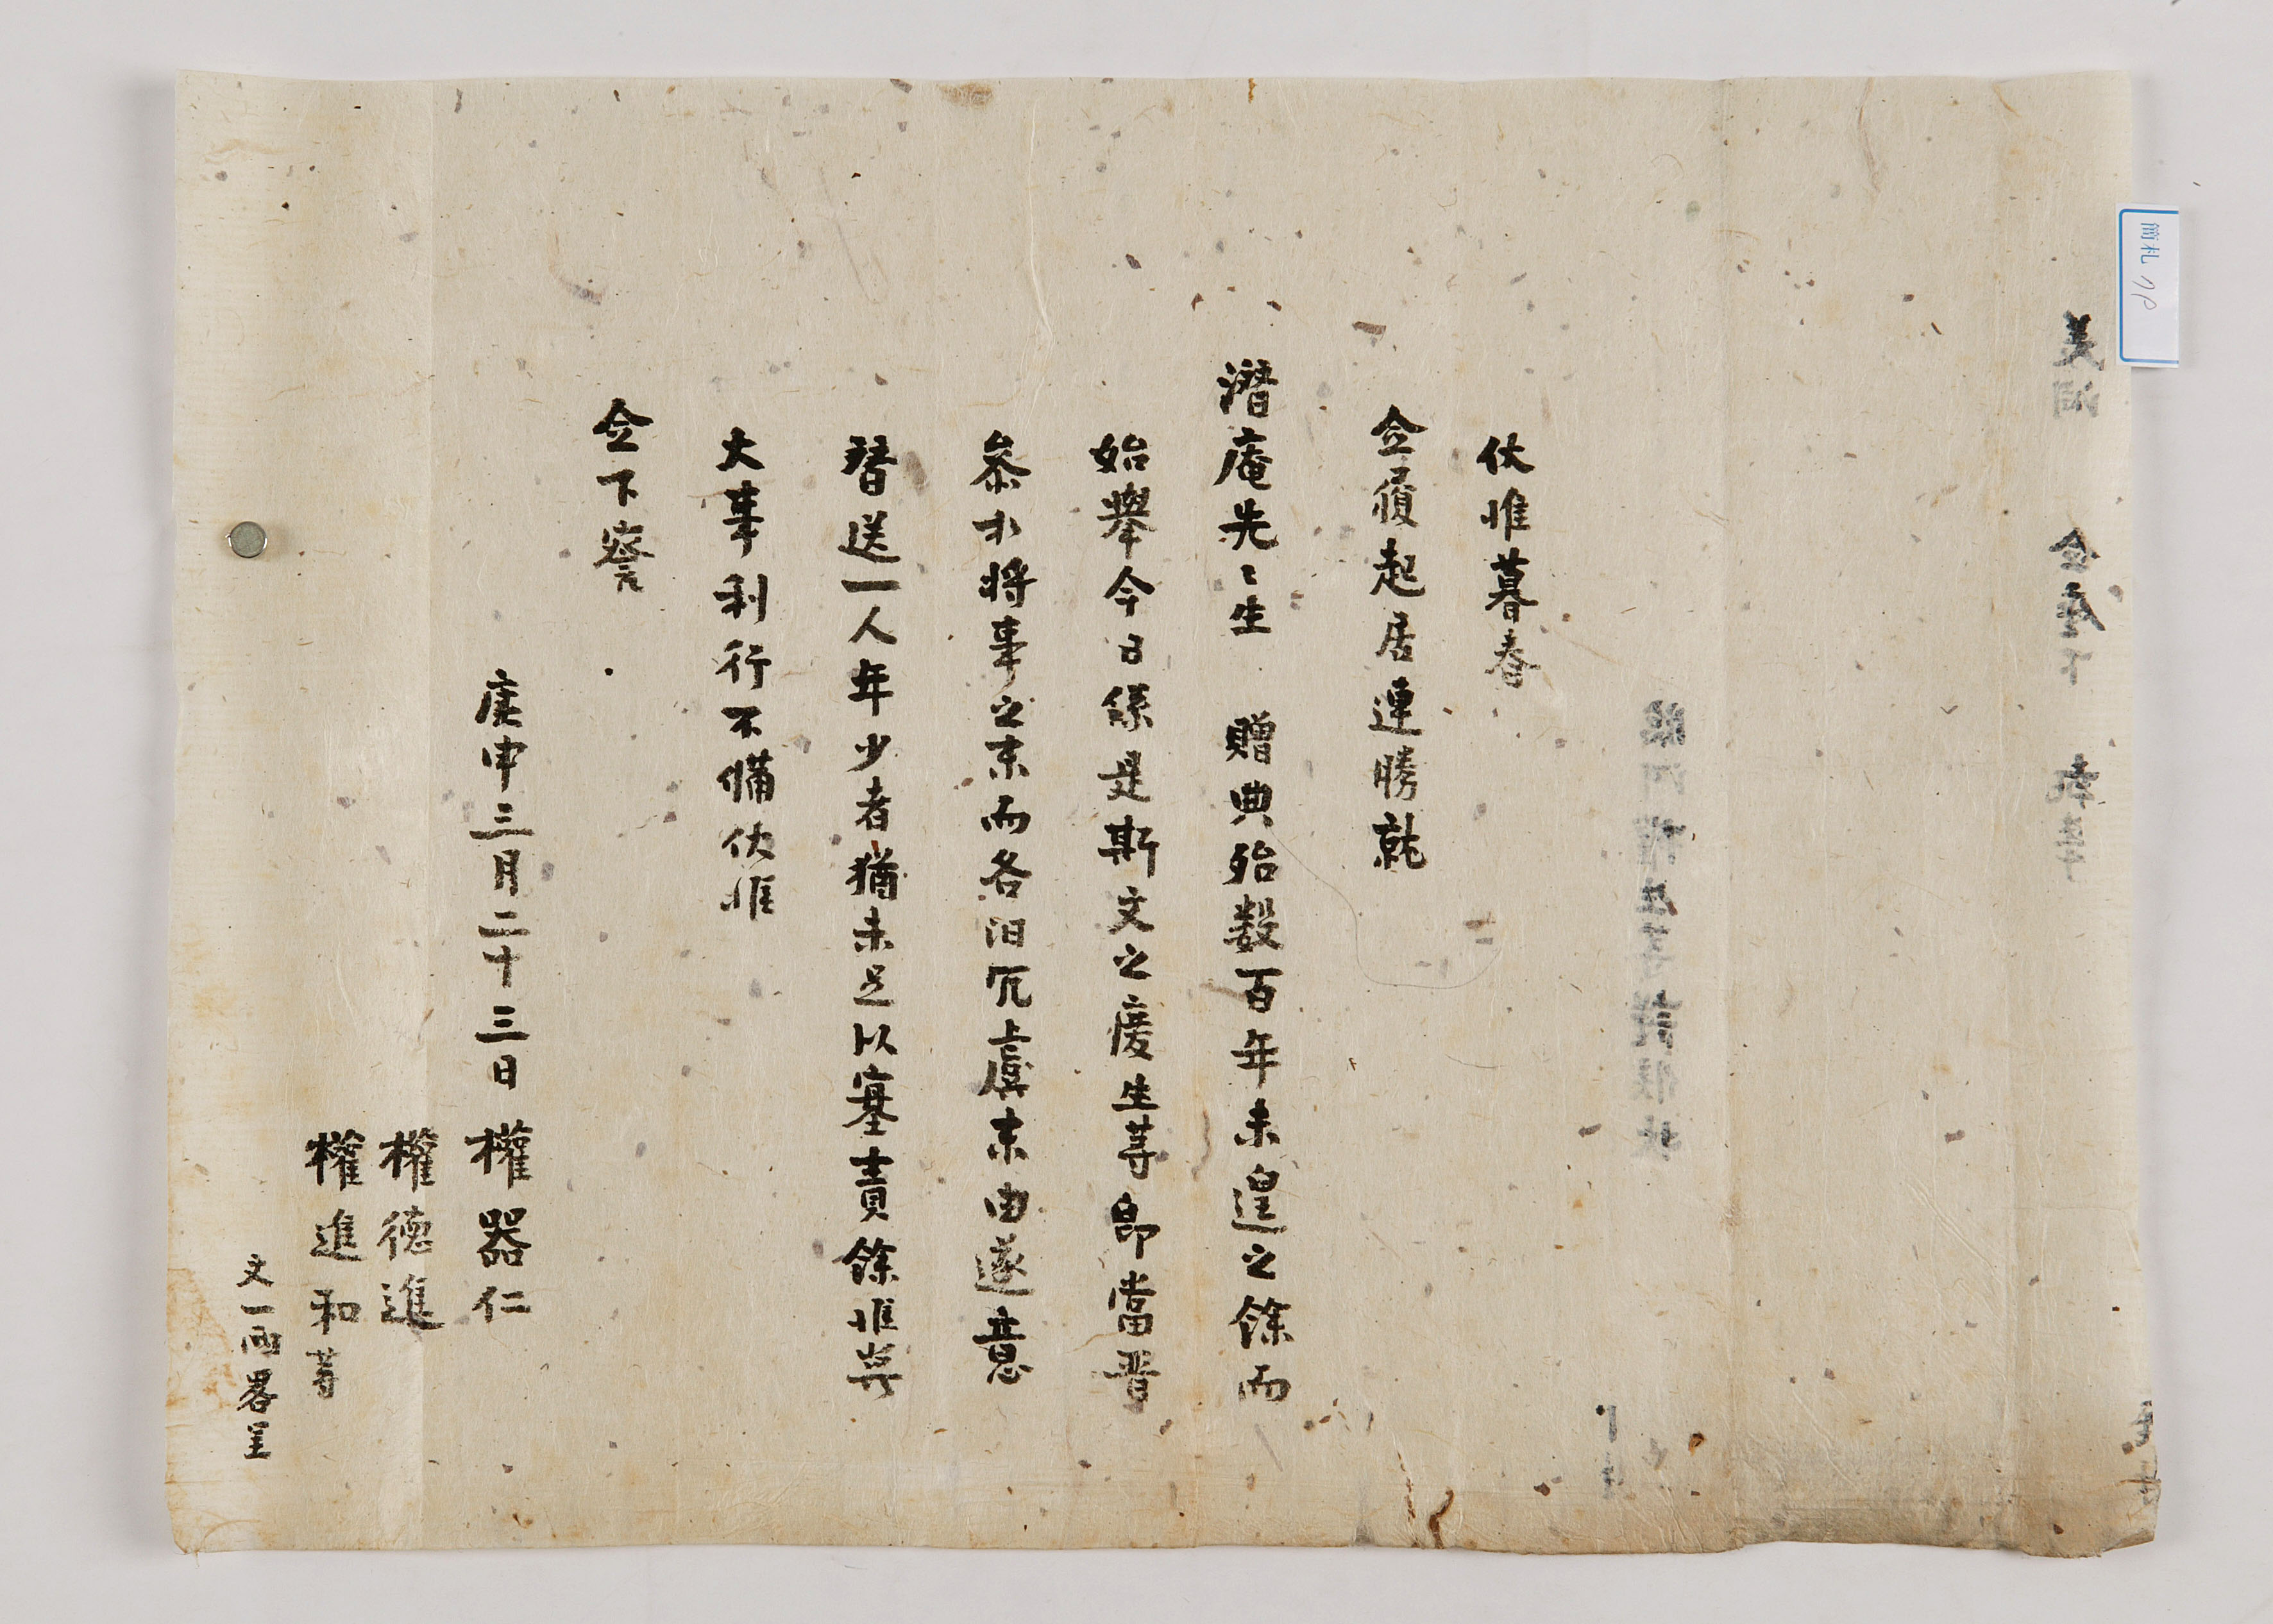 簡札
伏惟暮春
僉履起居連勝就
潛庵先〻生 贈典殆數百年未遑之餘而
始擧今日係是斯文之慶生等卽當晋
參於將事之末而各汨冗虞末由遂意
替送一人年少者猶未足以塞責餘惟冀
大事利行不備伏惟
僉下察
庚申三月二十三日 權器仁
權德進
權進和等
文一兩畧呈